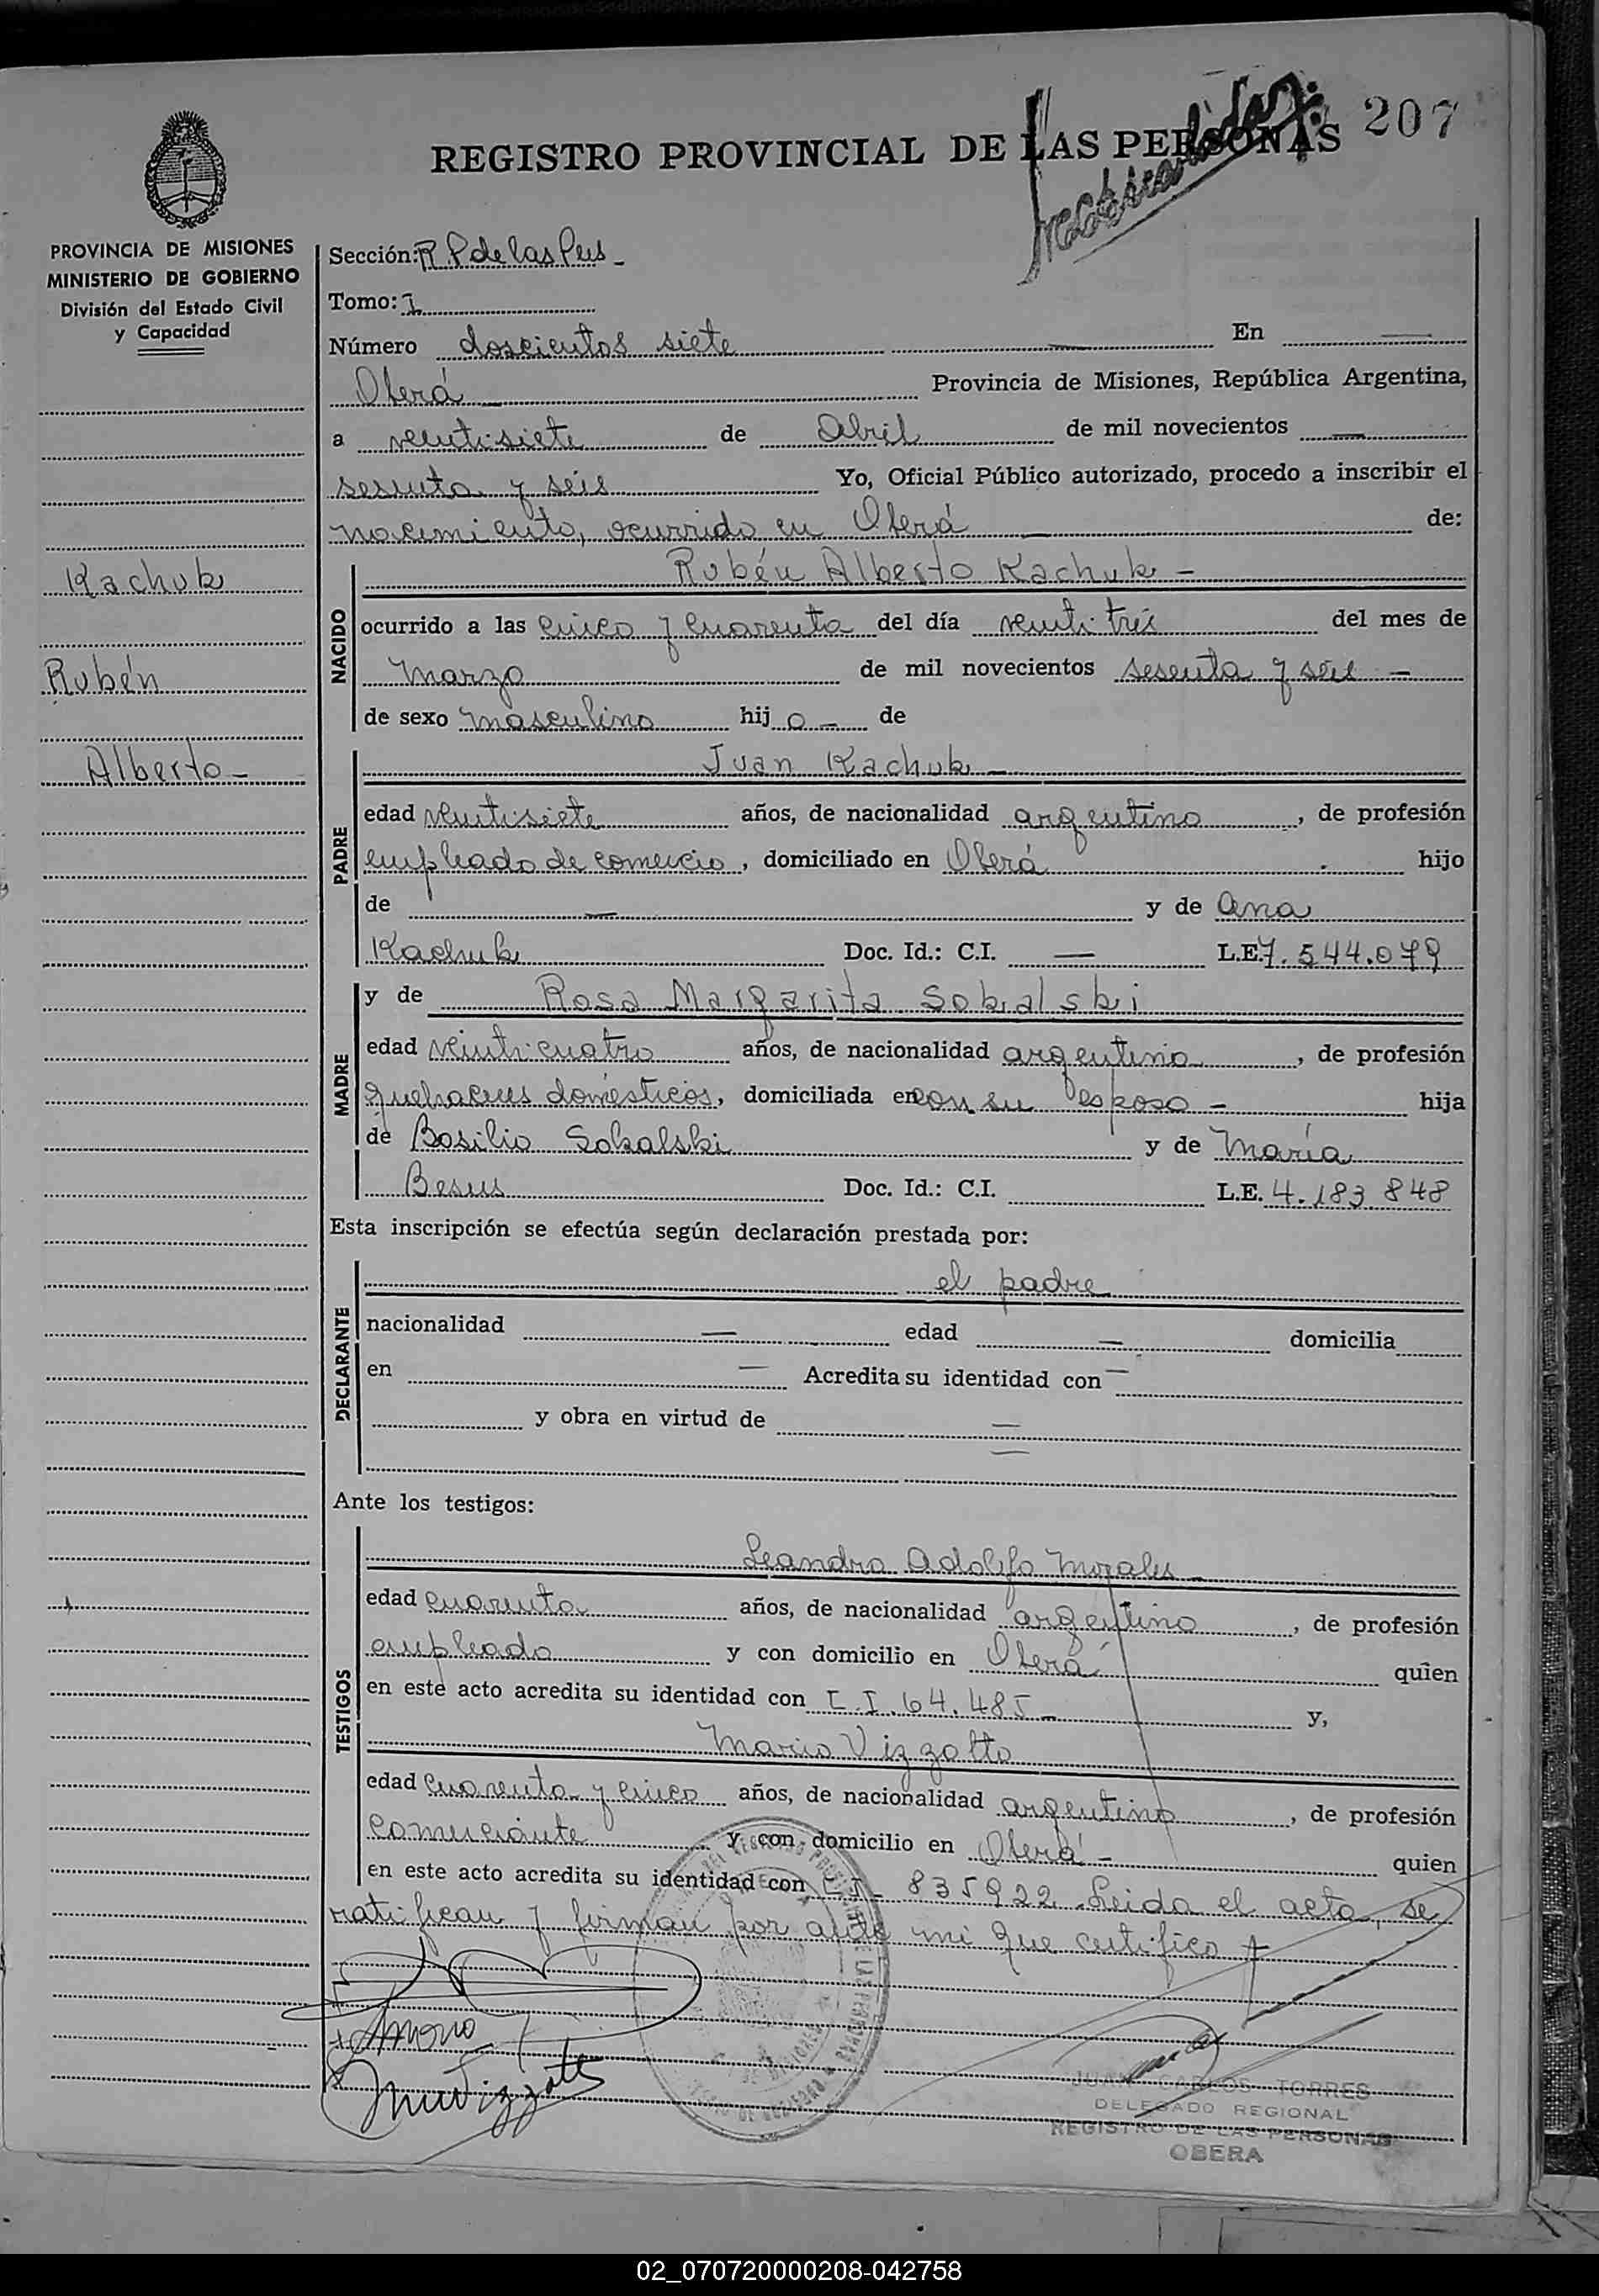 207
REGISTRO PROVINCIAL DE LAS PERSONAS
PROVINCIA DE MISIONES
MINISTERIO DE GOBIERNO
División del Estado Civil
y Capacidad
Kachuk
Rubén
Alberto -
Sección: R P de las Pers -
Tomo: I
Número doscientos siete — En —
Oberá — Provincia de Misiones, República Argentina,
a veintisiete de Abril de mil novecientos —
sesenta y séis Yo, Oficial Público autorizado, procedo a inscribir el
nacimiento, ocurrido en Oberá — de:
NACIDO
Rubén Alberto Kachuk -
ocurrido a las cinco y cuarenta del día veintitrés del mes de
Marzo de mil novecientos sesenta y séis -
de sexo masculino hij o - de
PADRE
Juan Kachuk -
edad veintisiete años, de nacionalidad argentino, de profesión
empleado de comercio, domiciliado en Oberá hijo
de — y de Ana
Kachuk Doc. Id.: C.I. — L.E. 7.544.079
MADRE
y de Rosa Margarita Sokalski
edad veinticuatro años, de nacionalidad argentina, de profesión
quehaceres domésticos, domiciliada en con su esposo - hija
de Basilio Sokalski y de María
Besus Doc. Id.: C.I. L.E. 4.183.848
Esta inscripción se efectúa según declaración prestada por:
DECLARANTE
el padre
nacionalidad — edad — domicilia
en — Acredita su identidad con —
y obra en virtud de —
Ante los testigos:
TESTIGOS
Leandro Adolfo Morales -
edad cuarenta años, de nacionalidad argentino, de profesión
empleado y con domicilio en Oberá quien
en este acto acredita su identidad con C.I. 64.485 - y,
Mario Vizzotto
edad cuarenta y cinco años, de nacionalidad argentino, de profesión
comerciante y con domicilio en Oberá - quien
en este acto acredita su identidad con C.I. 835922. Leida el acta, se
ratifican y firman por ante mi que certifico
JUAN CARLOS TORRES
DELEGADO REGIONAL
REGISTRO DE LAS PERSONAS
OBERA
02_070720000208-042758